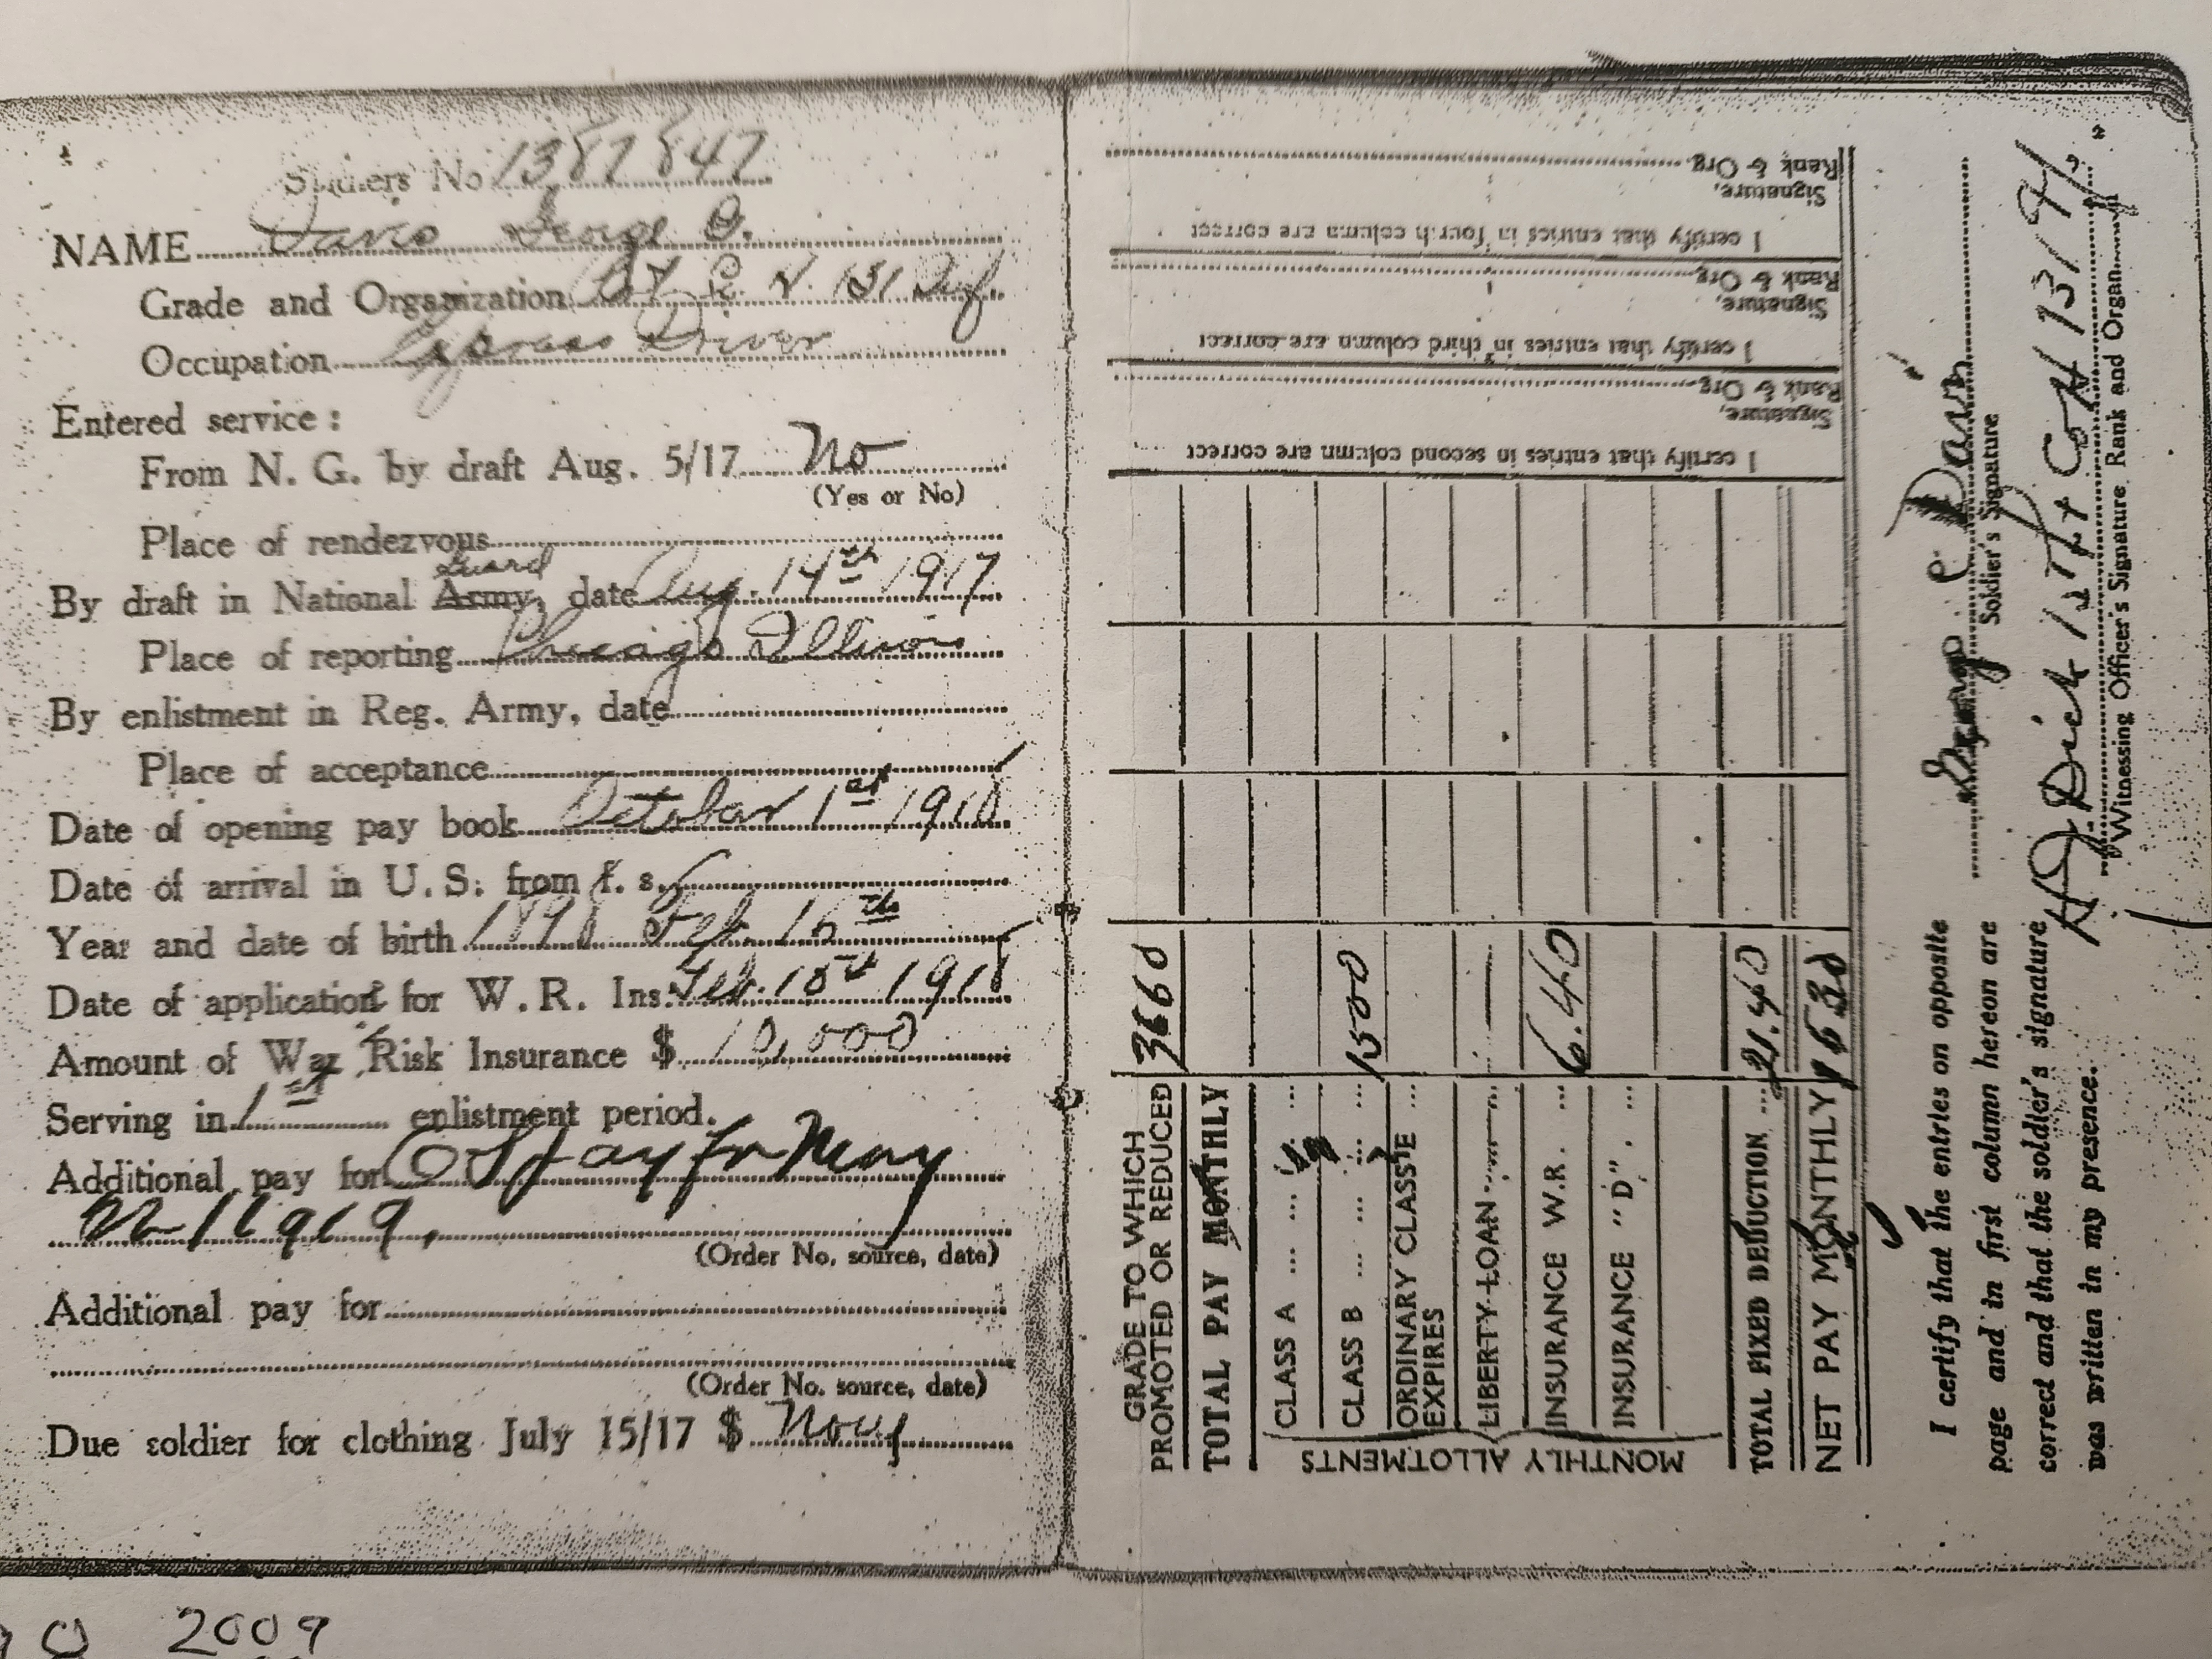 Soldiers No 1387847
NAME Davis George C.
Grade and Organization Co. H. 131 Inf.
Occupation Express Driver
Entered service:
From N. G. by draft Aug. 5/17 No
(Yes or No)
Place of rendezvous
Guard
By draft in National Army, date Aug. 14th 1917
Place of reporting Chicago Illinois
By enlistment in Reg. Army, date
Place of acceptance
Date of opening pay book October 1st 1918
Date of arrival in U.S. from f. s.
Year and date of birth 1898 16th
Date of application for W.R. Ins. Feb. 1918
Amount of War Risk Insurance $ 10,000
Serving in 1st enlistment period.
Additional pay for Pay for May
1919,
(Order No, source, date)
Additional pay for
(Order No. source, date)
Due soldier for clothing July 15/17 $
2009
I certify that entries in fourth column are correct
Signature,
Rank & Org.
I certify that entries in third column are correct
Signature,
Rank & Org.
I certify that entries in second column are correct
Signature,
Rank & Org.
GRADE TO WHICH
PROMOTED OR REDUCED 3660
TOTAL PAY MONTHLY
MONTHLY ALLOTMENTS
CLASS A
CLASS B 1500
ORDINARY CLASS E
EXPIRES
LIBERTY LOAN
INSURANCE W.R. 6.40
INSURANCE "D".
TOTAL FIXED DEDUCTION 21.40
NET PAY MONTHLY
I certify that the entries on opposite
page and in first column hereon are
correct and that the soldier's signature
was written in my presence.
George C Davis
Soldier's Signature
1st Lt Co H 131
Witnessing Officer's Signature Rank and Organ.